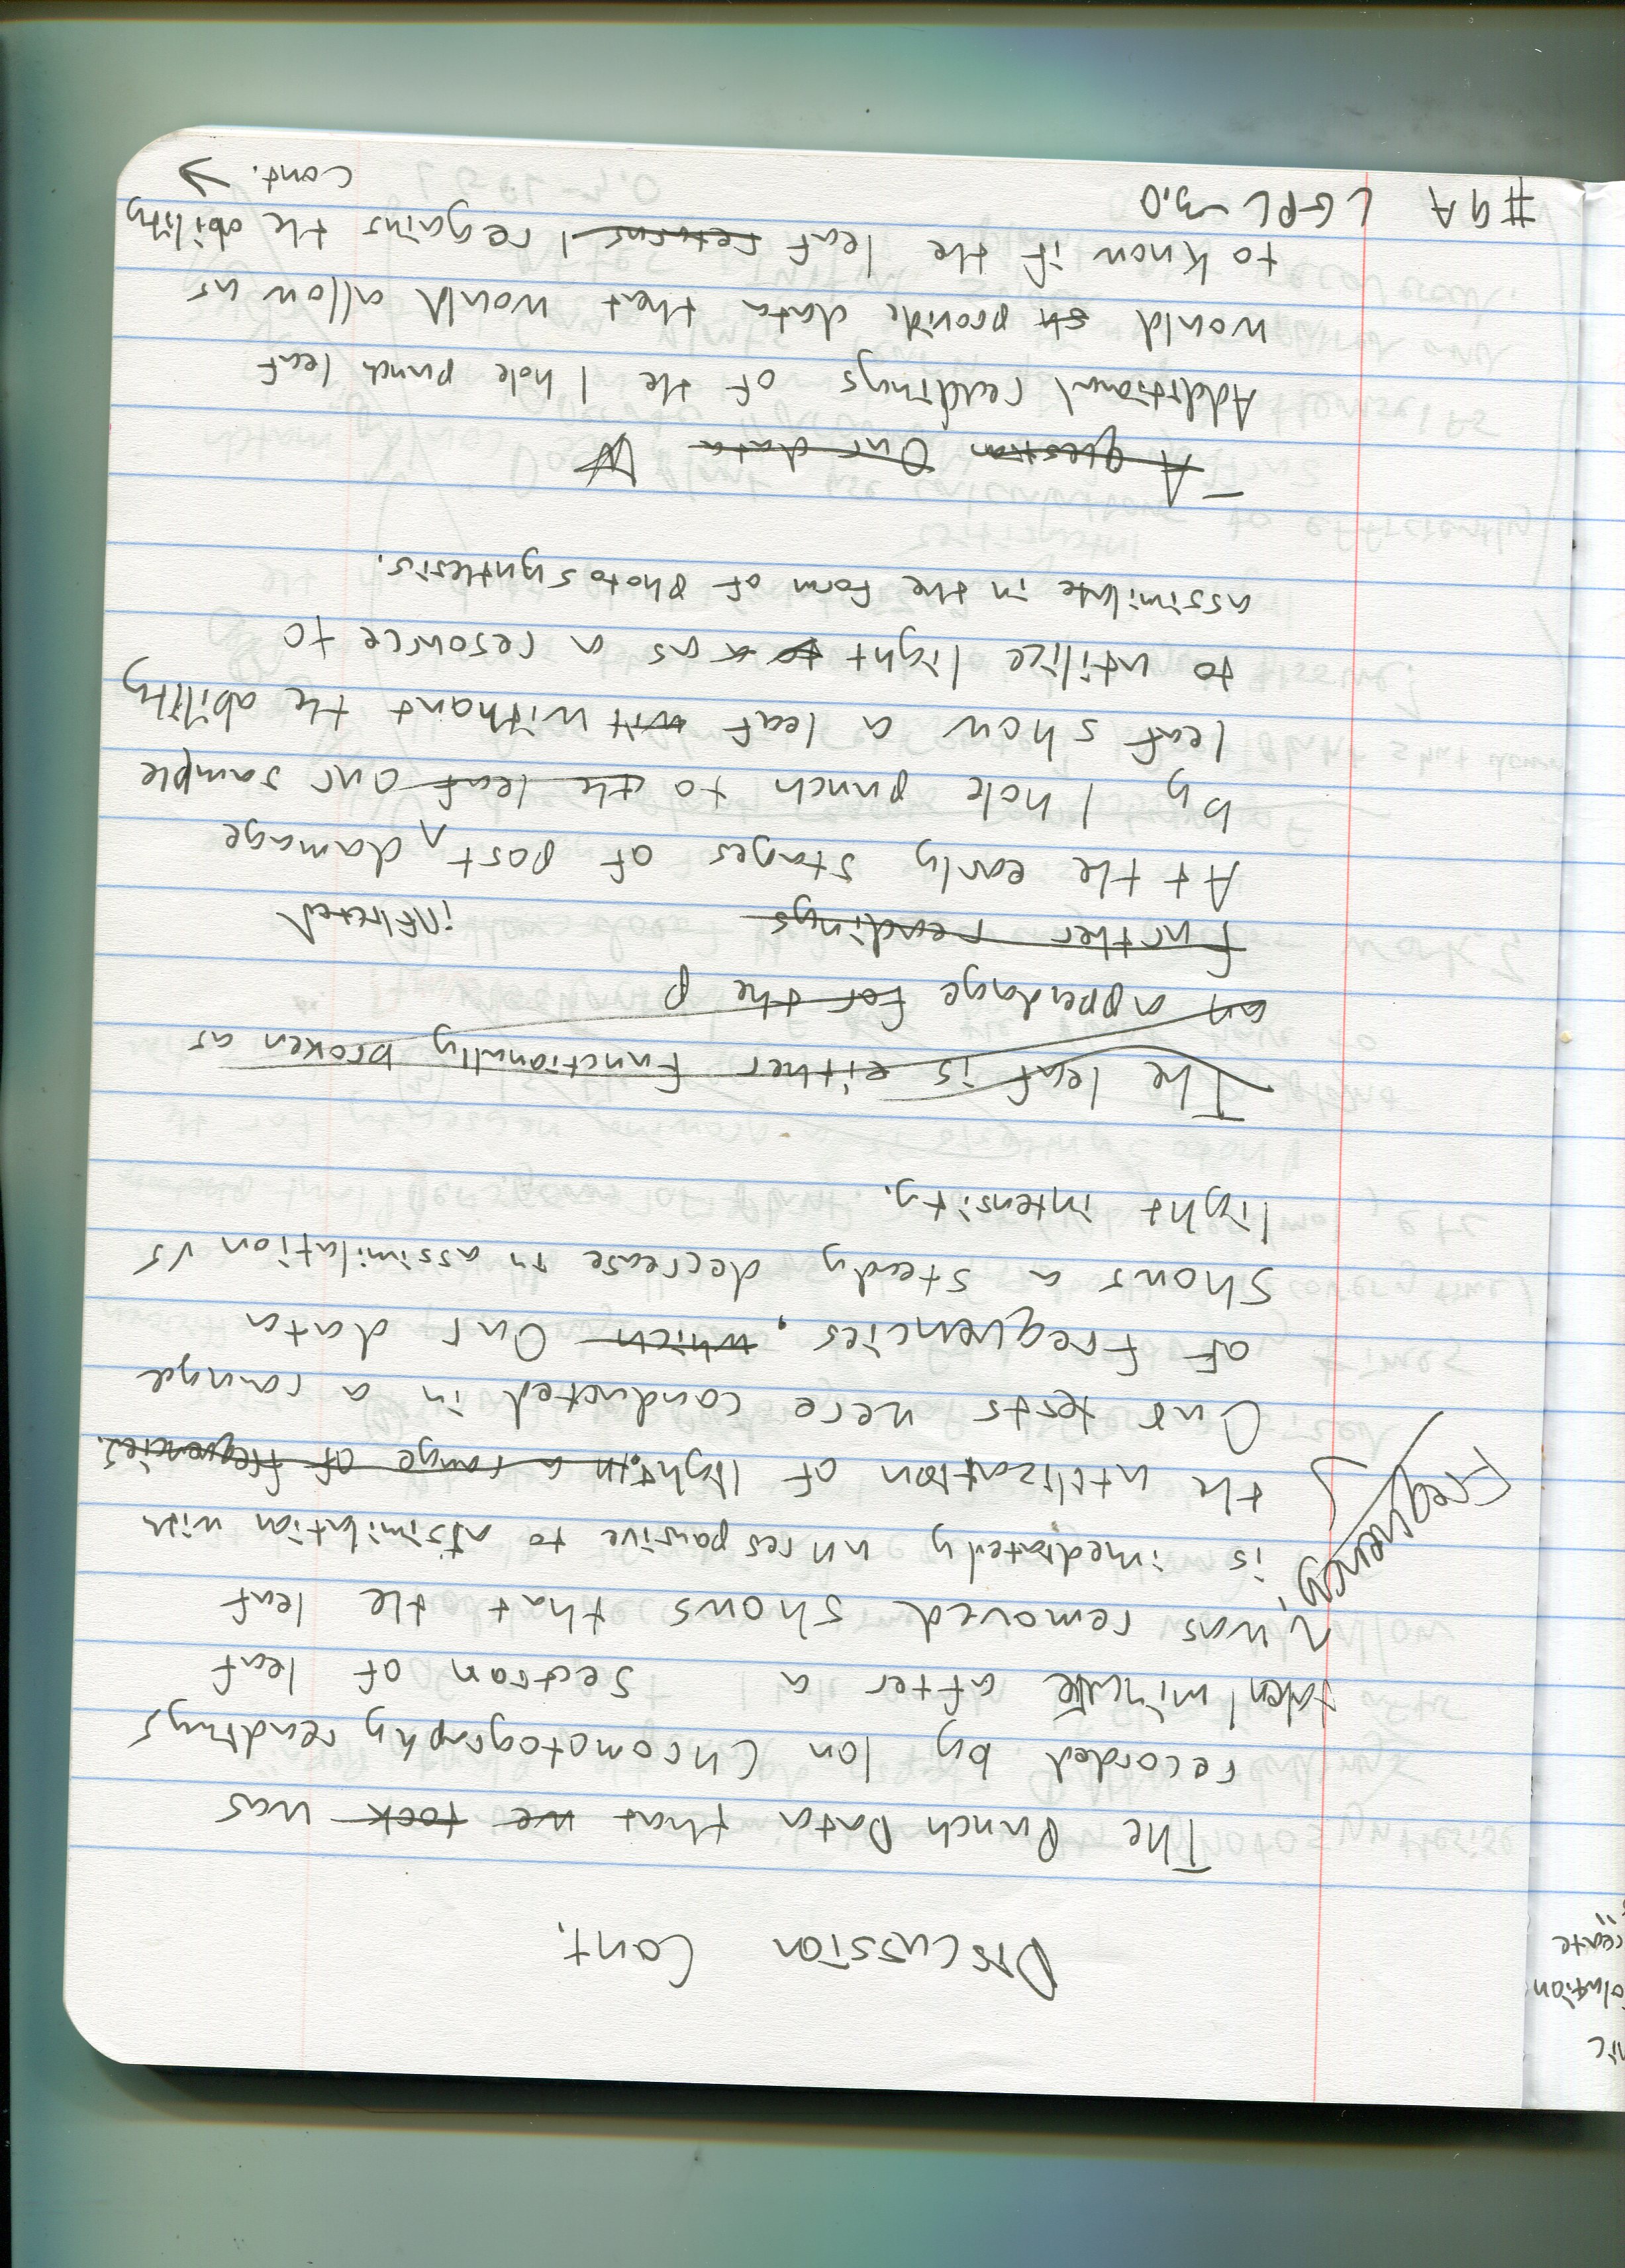 Discussion Cont.
The Punch Data that we took was
recorded by Ion Chromotography readings
taken 1 minute after a section of leaf
was removed shows that the leaf
is imediately unresponsive to assimilation with
the utilization of light. in a range of frequencies.
Frequency
Our tests were conducted in a range
of frequencies, which Our data
shows a steady decrease in assimilation vs
light intensity.
The leaf is either functionally broken as
an appendage for the p
Further readings
inflicted
At the early stages of post damage
by 1 hole punch to the leaf our sample
leaf show a leaf wit without the ability
to utilize light to as a resource to
assimilate in the form of photosynthesis.
A question Our data
Additional readings of the 1 hole punch leaf
would sh provide data that would allow us
to know if the leaf returns regains the ability
#9A LGPL-3.0 cont. →
olution
reate